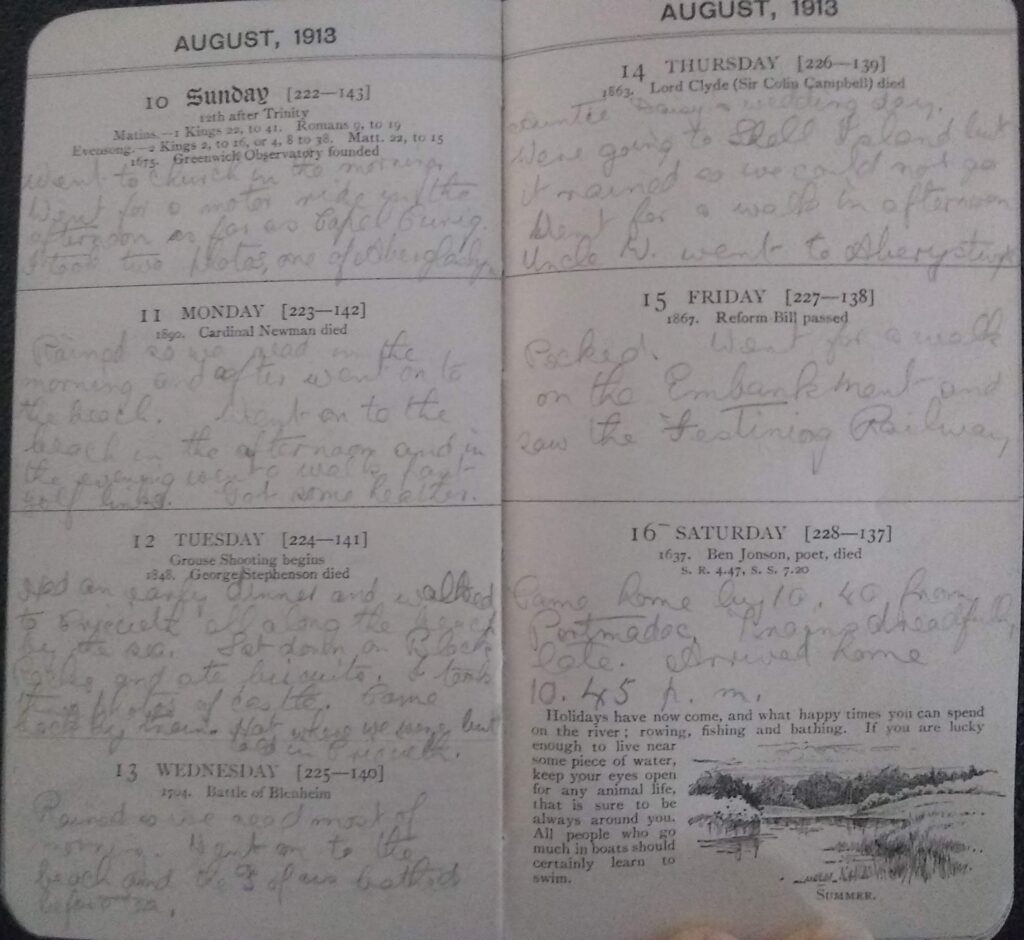 AUGUST, 1913
10 Sunday [222—143]
12th after Trinity
Matins.—1 Kings 22, to 41. Romans 9, to 19
Evensong.—2 Kings 2, to 16, or 4, 8 to 38. Matt. 22, to 15
1675. Greenwich Observatory founded
Went to church in the morning.
Went for a motor ride in the
afternoon as far as Capel Curig.
I took two photos, one of Aberglaslyn
11 MONDAY [223—142]
1890. Cardinal Newman died
Rained so we read in the
morning and after went on to
the beach. Went on to the
beach in the afternoon and in
the evening went a walk past
golf links. Got some heather.
12 TUESDAY [224—141]
Grouse Shooting begins
1848. George Stephenson died
Had an early dinner and walked
to Criccieth all along the beach
by the sea. Sat down on Black
Rocks and ate biscuits. I took
photos of castle. Came
back by train. Hot where we were but
in Criccieth.
13 WEDNESDAY [225—140]
1704. Battle of Blenheim
Rained so we read most of
morning. Went on to the
beach and the 3 of us bathed
before
AUGUST, 1913
14 THURSDAY [226—139]
1863. Lord Clyde (Sir Colin Campbell) died
Auntie Daisy's wedding day.
Were going to Shell Island but
it rained so we could not go
Went for a walk in afternoon
Uncle W. went to Aberystwyth
15 FRIDAY [227—138]
1867. Reform Bill passed
Packed. Went for a walk
on the Embankment and
saw the Festiniog Railway
16 SATURDAY [228—137]
1637. Ben Jonson, poet, died
S. R. 4.47, S. S. 7.20
Came home by 10.40 from
Portmadoc. Trains dreadfully
late. Arrived home
10.45 p.m.
Holidays have now come, and what happy times you can spend
on the river; rowing, fishing and bathing. If you are lucky
enough to live near
some piece of water,
keep your eyes open
for any animal life,
that is sure to be
always around you.
All people who go
much in boats should
certainly learn to
swim.
SUMMER.